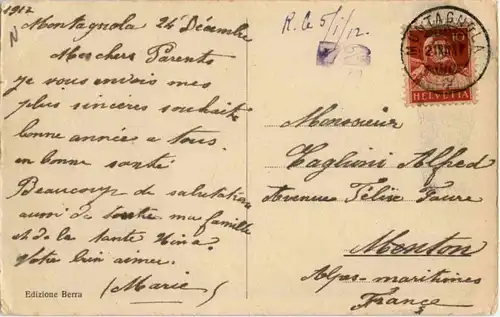 1912
N
Montagnola 24 Décembre
Mes chers Parents
je vous envois mes
plus sinceres souhaits
bonne année a tous
en bonne santé
Beaucoup de salutations
aussi de toute ma famille
et de la tante Nina.
Votre bien aimer.
(Marie)
Edizione Berra
R. le 5/1/12.
MONTAGNOLA
HELVETIA
Monsieur
Taglioni Alfred
Avenue Félix Faure
Menton
Alpes-maritimes
France